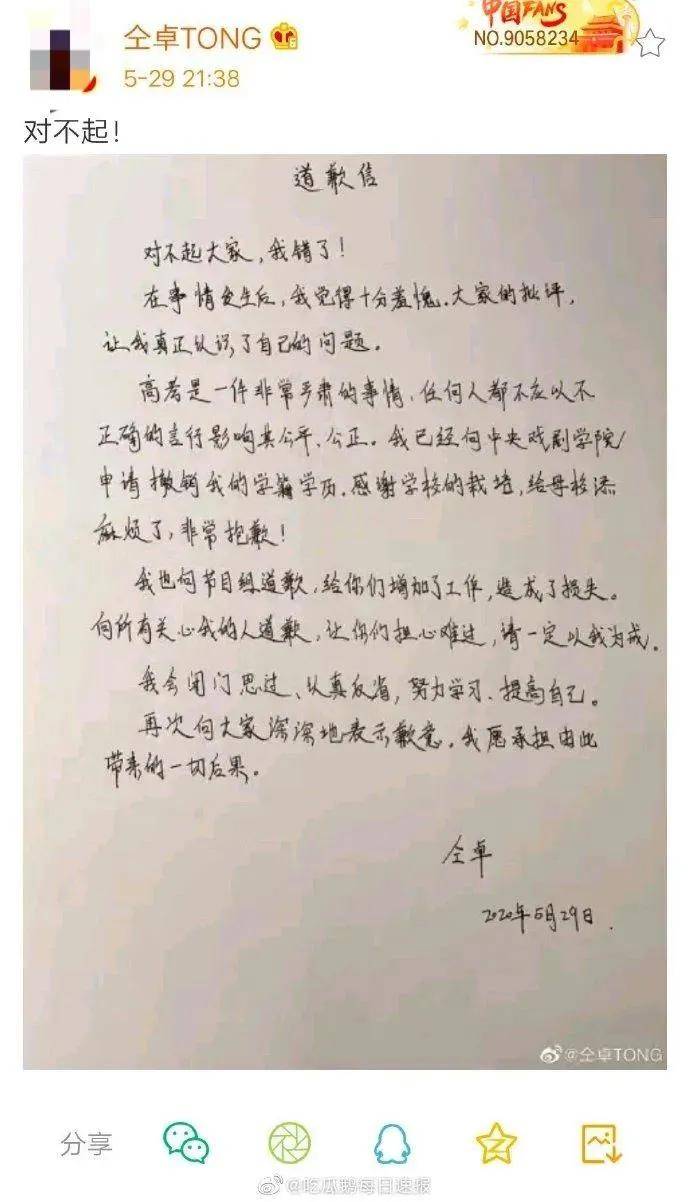 仝卓TONG
中国FANS
NO.9058234
5-29 21:38
对不起!
道歉信
对不起大家,我错了!
在事情发生后,我觉得十分羞愧.大家的批评,
让我真正认识了自己的问题。
高考是一件非常严肃的事情,任何人都不应以不
正确的言行影响其公平、公正。我已经向中央戏剧学院
申请撤销我的学籍学历.感谢学校的栽培,给母校添
麻烦了,非常抱歉!
我也向节目组道歉,给你们增加了工作,造成了损失。
向所有关心我的人道歉,让你们担心难过,请一定以我为戒。
我会闭门思过、认真反省,努力学习、提高自己。
再次向大家深深地表示歉意。我愿承担由此
带来的一切后果。
仝卓
2020年5月29日.
@仝卓TONG
分享
@吃瓜鹅每日速报